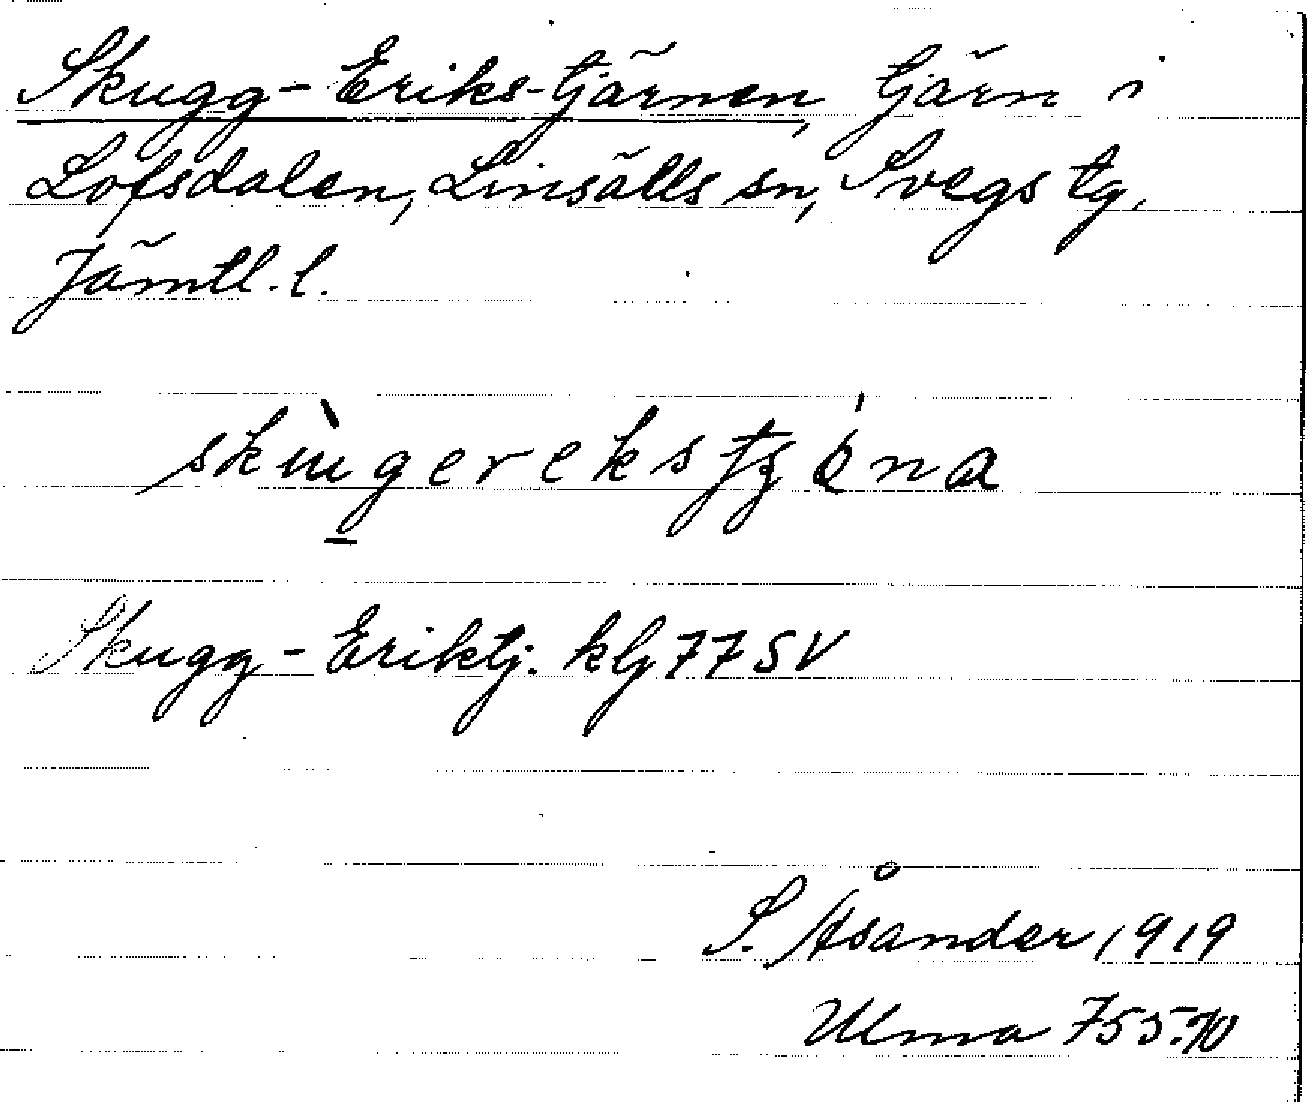 Skugg-Eriks-tjärnen, tjärn i
Lofsdalen, Linsälls sn, Svegs tg,
Jämtl. l.
Skugg-Eriktj. klj 77 SV
S. Åsander 1919
Ulma 755:10